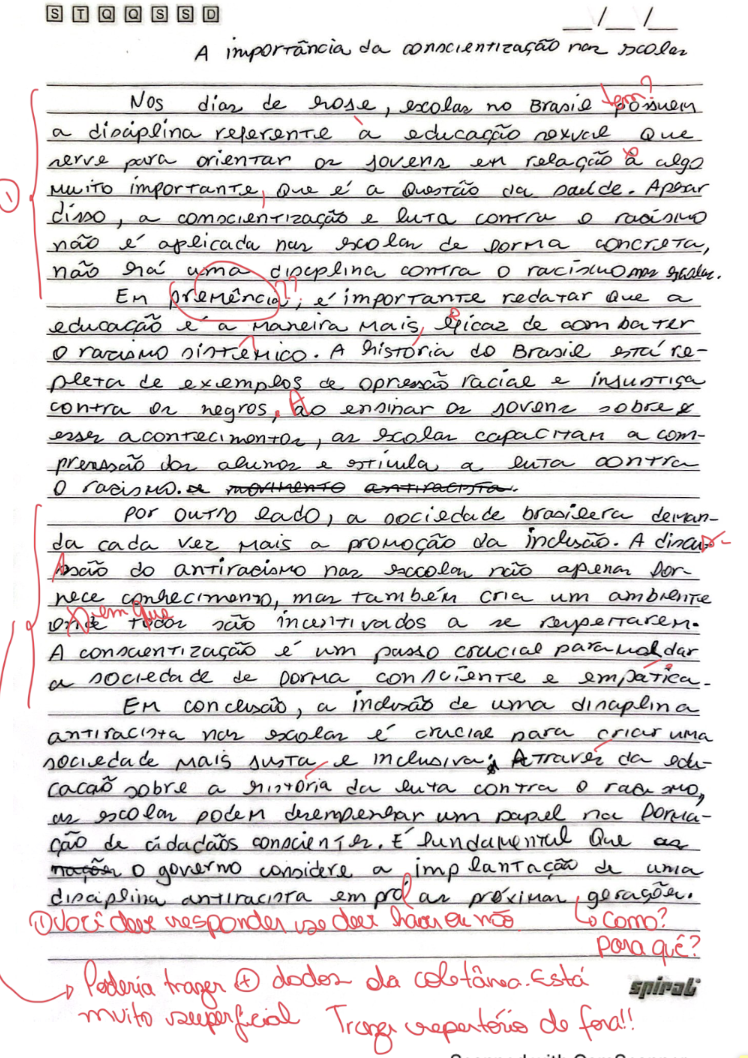 S T Q Q S S D
__/__/__
A importância da conscientização nas escolas
Nos dias de hoje, escolas no Brasil tem? possuem
a disciplina referente à educação sexual que
serve para orientar os jovens em relação a algo
muito importante, que é a questão da saúde. Apesar
disso, a conscientização e luta contra o racismo
não é aplicada nas escolas de forma concreta,
não há uma disciplina contra o racismo nas escolas.
Em premência??, é importante redatar que a
educação é a maneira mais, eficaz de combater
o racismo sistêmico. A história do Brasil está re-
pleta de exemplos de opressão racial e injustiça
contra os negros. Ao ensinar os jovens sobre
esses acontecimentos, as escolas capacitam a com-
preenssão dos alunos e estimula a luta contra
o racismo. se movimento antiracista.
Por outro lado, a sociedade brasileira deman-
da cada vez mais a promoção da inclusão. A discus-
são do antiracismo nas esccolas não apenas for-
nece conhecimento, mas também cria um ambiente
onde em que todos são incentivados a se respeitarem.
A conscientização é um passo crucial para moldar
a sociedade de forma consciente e empática.
Em conclusão, a inclusão de uma disciplina
antiracista nas escolas é crucial para criar uma
sociedade mais justa, e inclusiva; Através da edu-
cacão sobre a história da luta contra o racismo,
as escolas podem desempenhar um papel na forma-
ção de cidadãos conscientes. É fundamental que as
nações o governo considere a implantação de uma
disciplina antiracista em prol as próximas gerações.
① Você deve responder se deve haver ou não
↳ Como?
Para quê?
→ Poderia trazer ⊕ dados da coletânea. Está
muito superficial Trazer repertório de fora!!
①
spiral